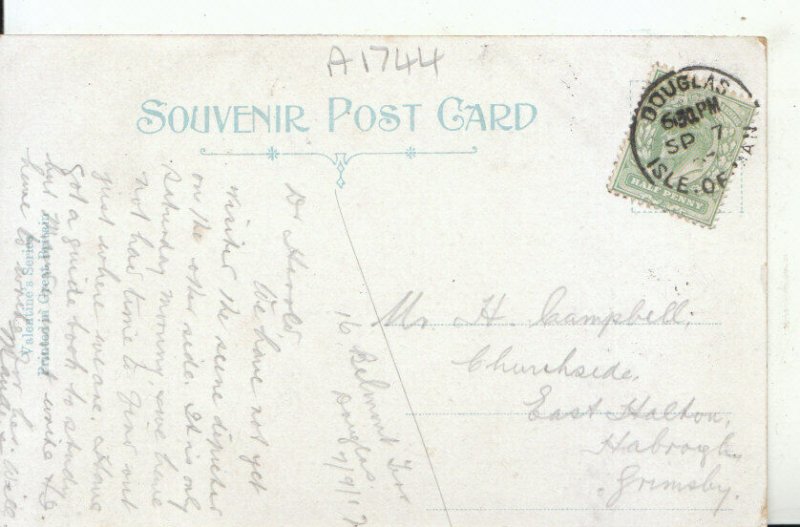 A1744
SOUVENIR POST CARD
DOUGLAS
6.30PM
SP 7
ISLE. OF MAN
HALF PENNY
Valentine's Series
Printed in Great Britain
16 Belmont Terr
Douglas
7/9/12
Dr Harold,
We have not yet
visited the scene depicted
on the other side. It is only
Saturday morning & we have
not had time to find out
just where we are. Have
got a guide book to study
but
home
Mr H. Campbell,
Churchside,
East Halton,
Habrough,
Grimsby.